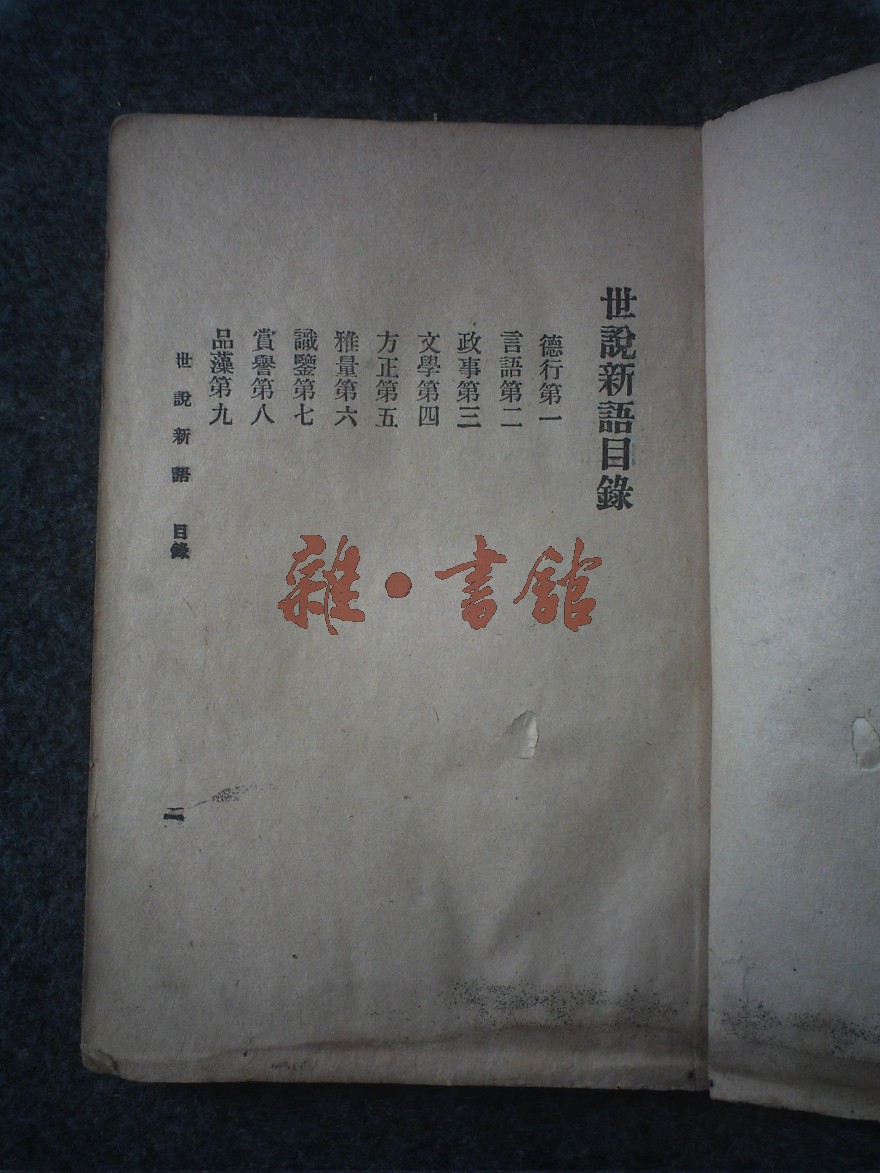 世說新語目錄
德行第一
言語第二
政事第三
文學第四
方正第五
雅量第六
識鑒第七
賞譽第八
品藻第九
世說新語 目錄
二
雜·書館